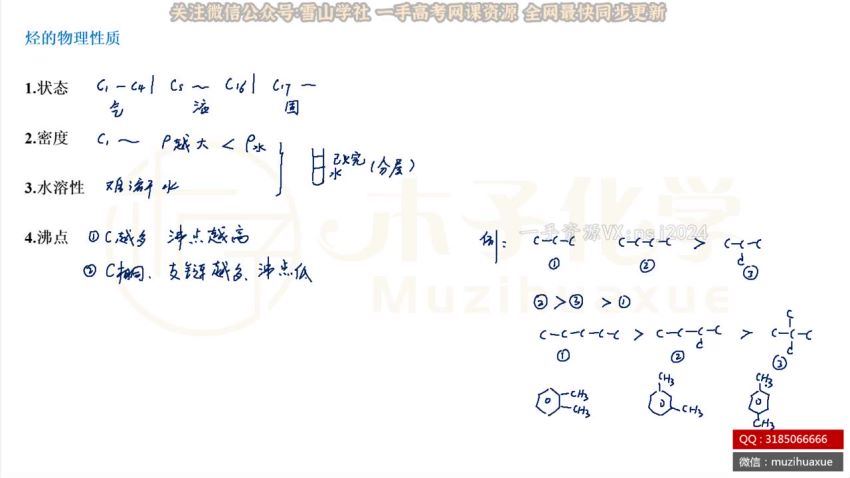 关注微信公众号:雪山学社 一手高考网课资源 全网最快同步更新
烃的物理性质
1.状态 C₁-C₄| C₅~C₁₆| C₁₇-
气 液 固
2.密度 C₁~ ρ越大<ρ水
己烷 水 (分层)
3.水溶性 难溶于水
4.沸点 ①C越多 沸点越高
②C相同、支链越多、沸点低
一手资源VX:nsj2024
例: C-C-C C-C-C-C > C-C-C
C
① ② ③
②>③>①
C
C-C-C-C-C > C-C-C-C > C-C-C
C C
① ② ③
CH₃ CH₃ CH₃ CH₃
CH₃ CH₃
木子化学
Muzihuaxue
QQ:3185066666
微信:muzihuaxue